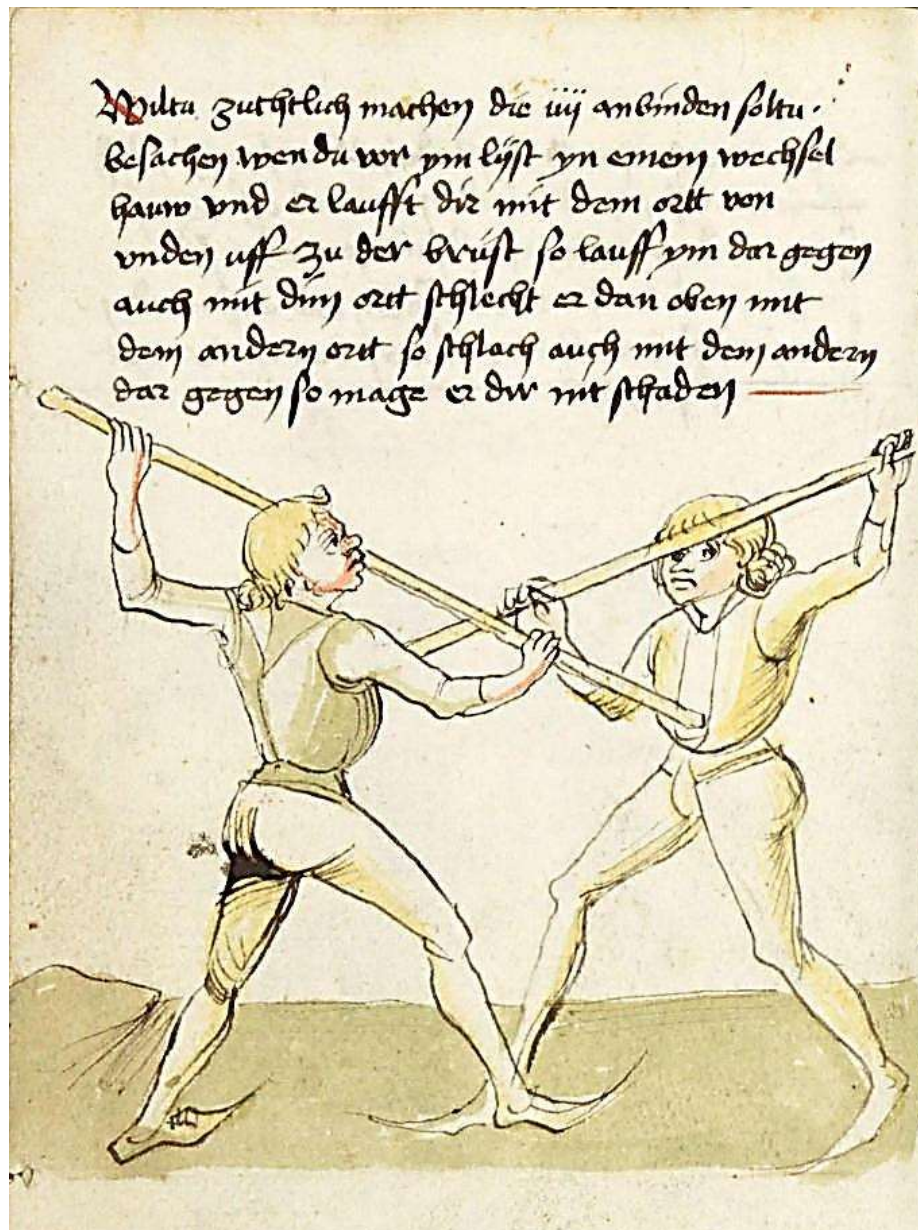 Wiltu zuchtlich machen die iiij anbinden soltu
besachen wen du vor ym lyst yn einem wechsel
hauw vnd er laufft dir mit dem ortt von
vnden uff zu der brust so lauff ym dar gegen
auch mit dim ortt schlecht er dan oben mit
dem andern ortt so schlach auch mit dem andern
dar gegen so mage er dir nit schaden